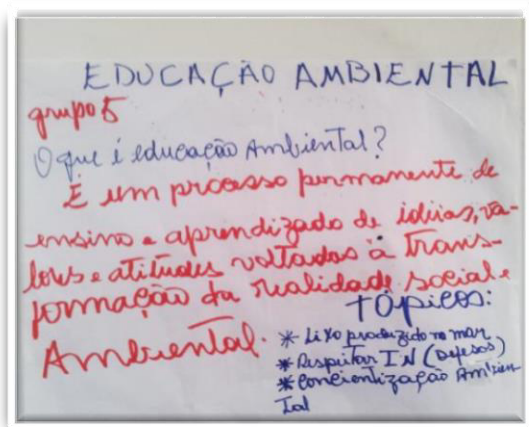 EDUCAÇÃO AMBIENTAL
grupo 5
O que é educação Ambiental?
É um processo permanente de
ensino e aprendizado de ideias, va-
lores e atitudes voltados à trans-
formação da realidade social e
Ambiental.
TÓPICOS:
* Lixo produzido no mar
* Respeitar IN (Defesos)
* Concientização Ambien
tal